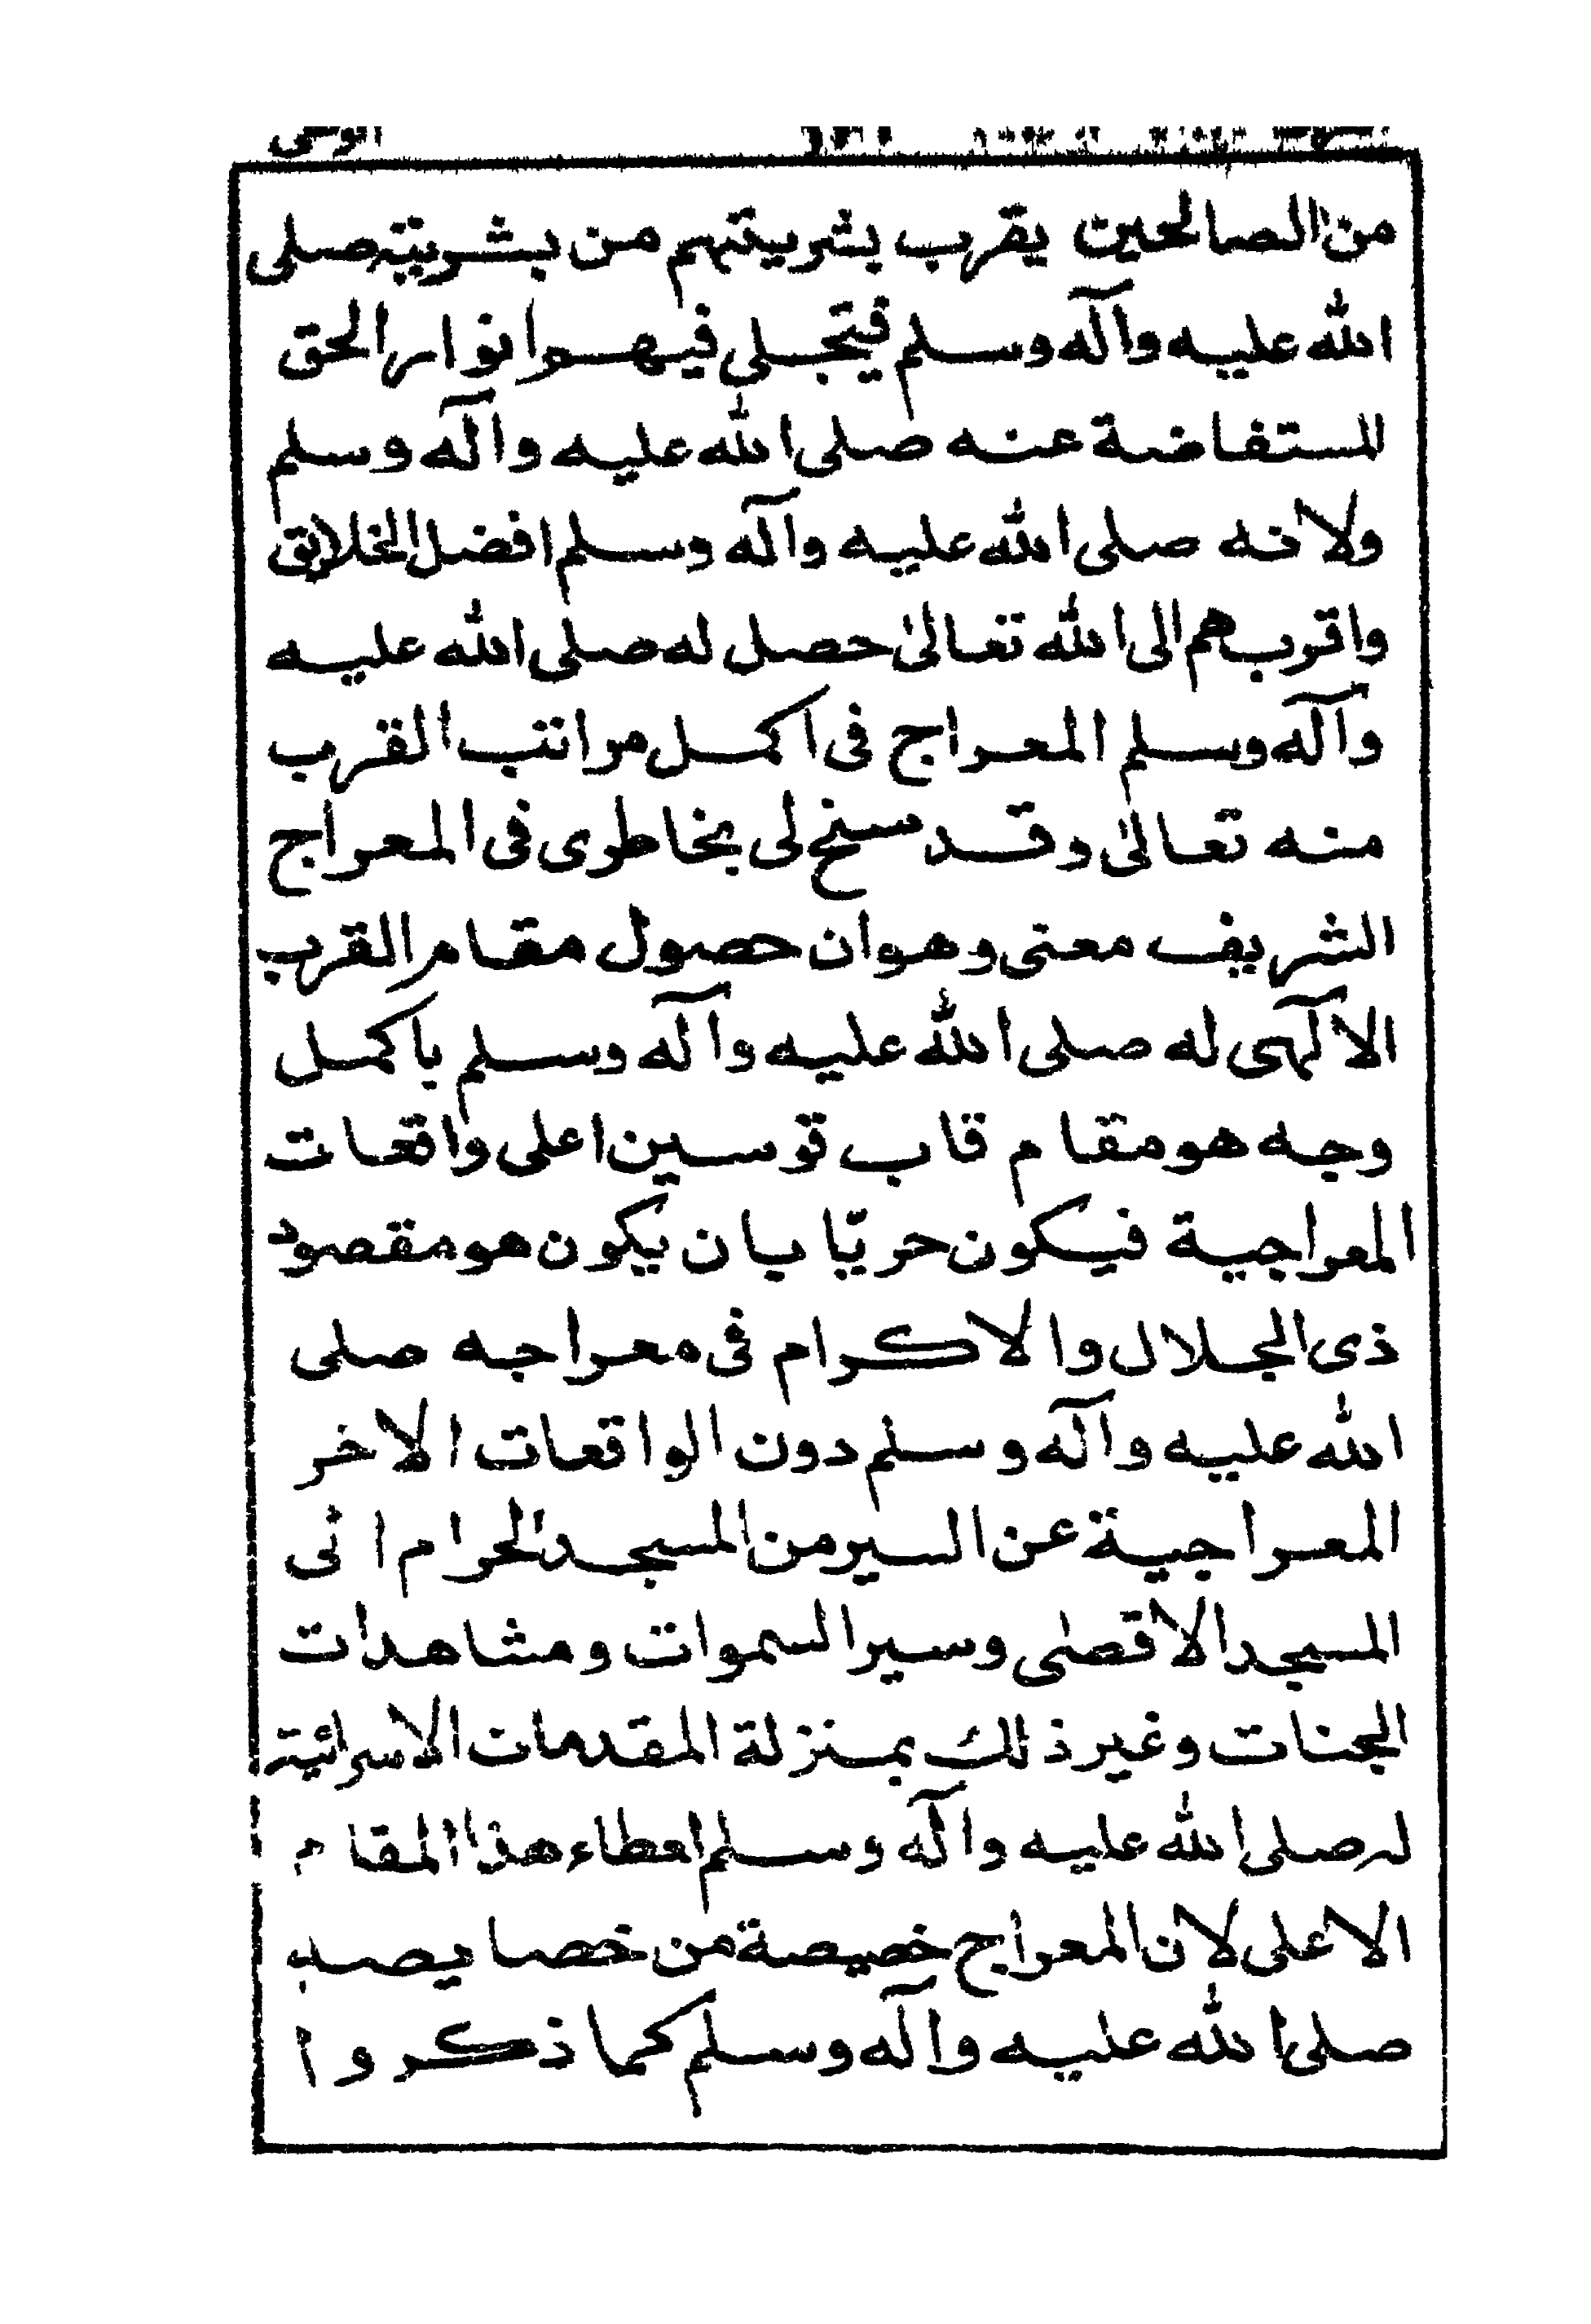 من الصالحين يقرب بشريتهم من بشريته صلى
الله عليه وآله وسلم فيتجلى فيهم انوار الحق
المستفاضة عنه صلى الله عليه وآله وسلم
ولانه صلى الله عليه وآله وسلم افضل الخلائق
واقربهم الى الله تعالىٰ حصل له صلى الله عليه
وآله وسلم المعراج فى اكمل مراتب القرب
منه تعالىٰ وقد سنح لى بخاطرى فى المعراج
الشريف معنى وهو ان حصول مقام القرب
الالٓهى له صلى الله عليه وآله وسلم باكمل
وجه هو مقام قاب قوسين اعلى واقعات
المعراجية فيكون حريّا بان يكون هو مقصود
ذى الجلال والاكرام فى معراجه صلى
الله عليه وآله وسلم دون الواقعات الاخر
المعراجية عن السير من المسجد الحرام الى
المسجد الاقصٰى وسير السموات ومشاهدات
الجنات وغير ذلك بمنزلة المقدمات الاسرائية
له صلى الله عليه وآله وسلم لعطاء هذا المقام
الاعلى لان المعراج خصيصة من خصايصه
صلى الله عليه وآله وسلم كما ذكروا